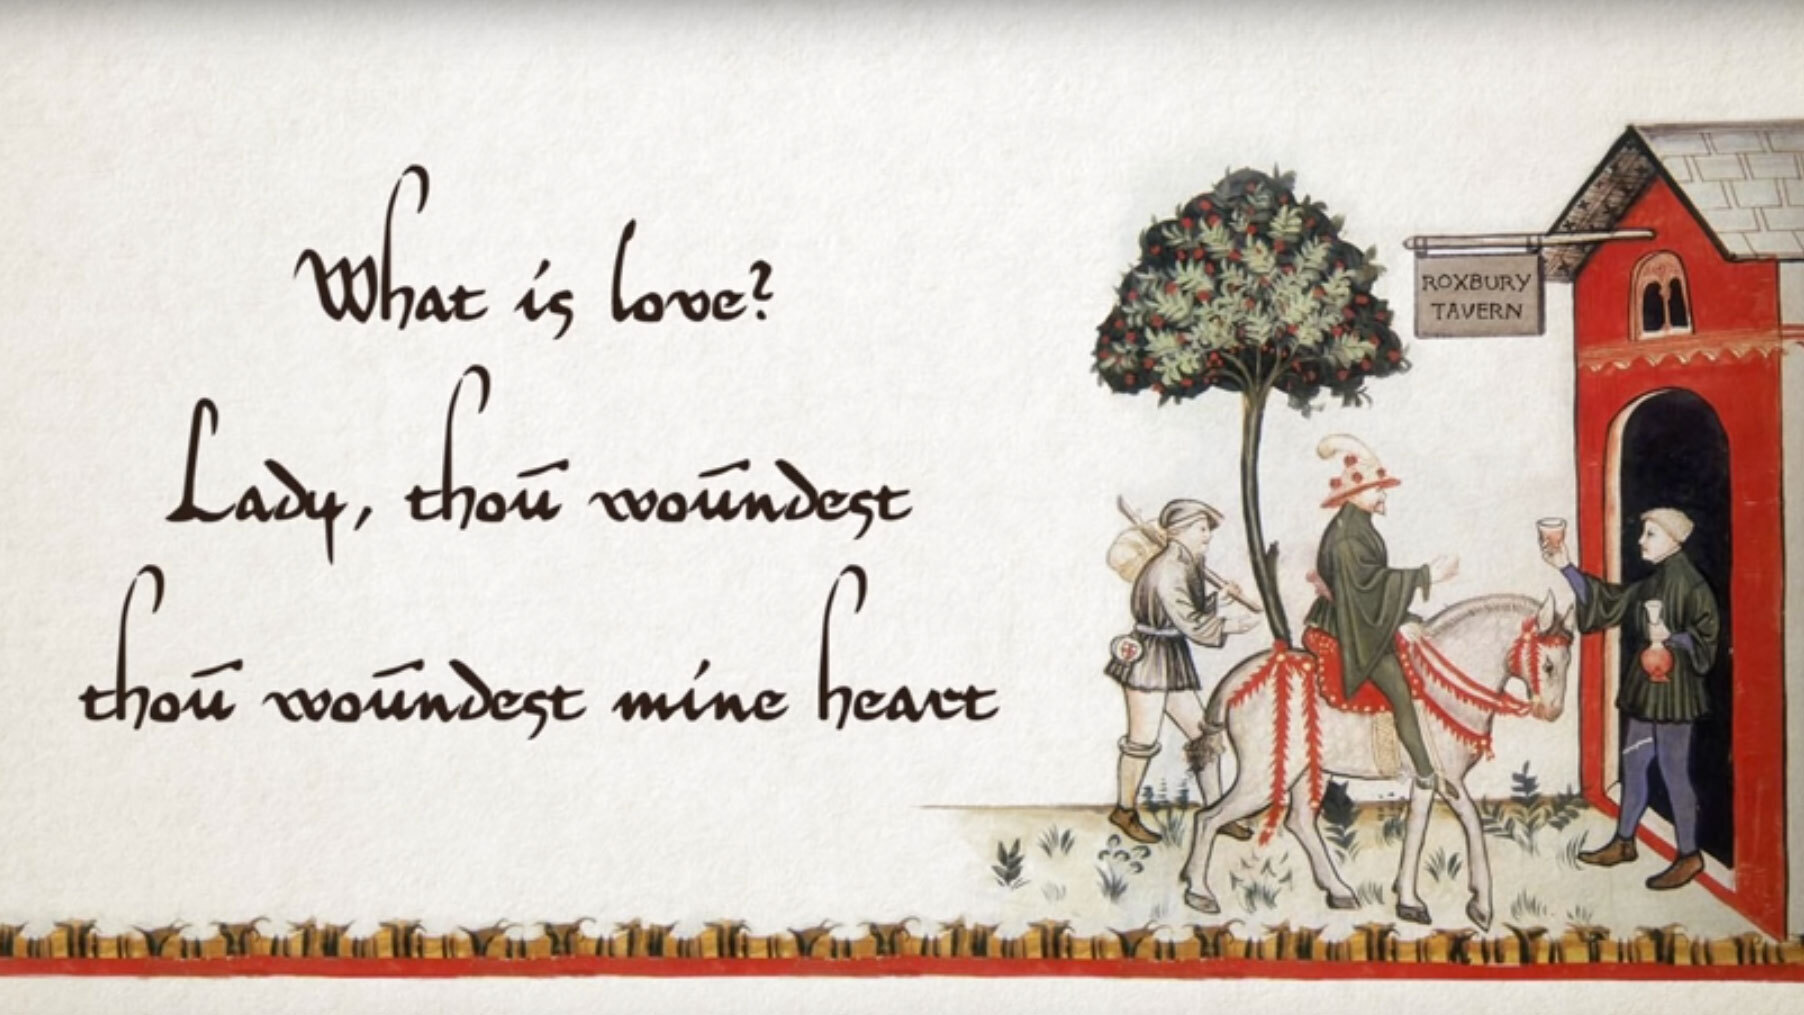 What is love?
Lady, thoū woūndest
thoū woūndest mine heart
ROXBURY
TAVERN